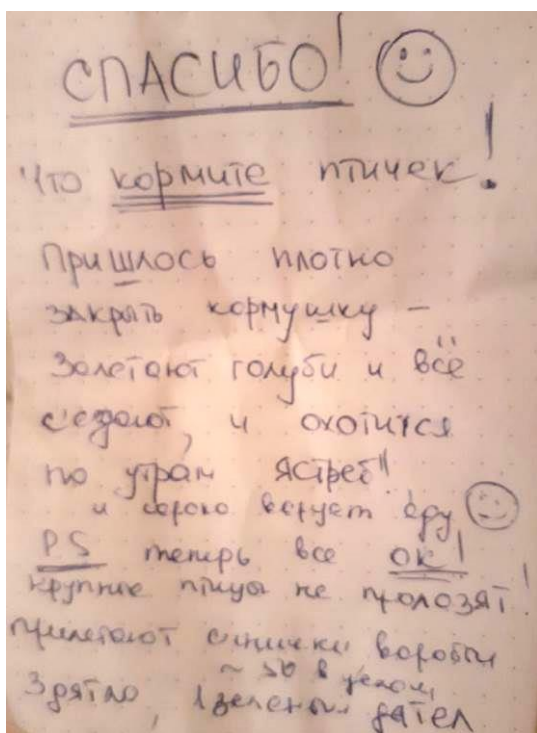 СПАСИБО!
Что кормите птичек!
Пришлось плотно
закрыть кормушку –
Залетают голуби и всё
съедают, и охотится
по утрам ястреб"
и сорока ворует еду
PS теперь все ОК!
крупные птицы не пролозят!
прилетают синички воробьи
~ 50 в целом,
3 дятла, 1 зеленый дятел